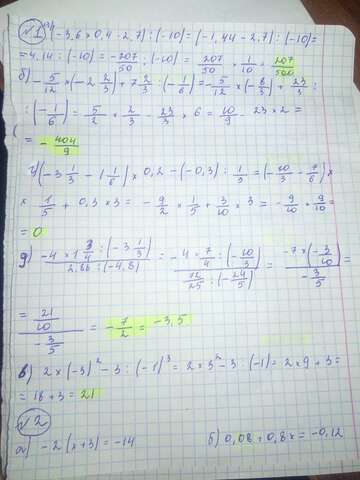 №1 а) (-3,6 × 0,4 - 2,7) : (-10) = (-1,44 - 2,7) : (-10) =
= 4,14 : (-10) = -207/50 : (-10) = 207/50 × 1/10 = 207/500
б) -5/12 × (-2 2/3) + 7 2/3 : (-1/6) = -5/12 × (-8/3) + 23/3 :
: (-1/6) = 5/2 × 2/3 - 23/3 × 6 = 10/9 - 23 × 2 =
= -404/9
г) (-3 1/3 - 1 1/6) × 0,2 - (-0,3) : 1/3 = (-10/3 - 7/6) ×
× 1/5 + 0,3 × 3 = -9/2 × 1/5 + 3/10 × 3 = -9/10 + 9/10 =
= 0
д) -4 × 1 3/4 : (-3 1/3) / 2,88 : (-4,8) = -4 × 7/4 : (-10/3) / 72/25 : (-24/5) = -7 × (-3/10) / -3/5 =
= 21/10 / -3/5 = -7/2 = -3,5
в) 2 × (-3)² - 3 : (-1)³ = 2 × 3² - 3 : (-1) = 2 × 9 + 3 =
= 18 + 3 = 21
№2
а) -2(x+3) = -14 б) 0,08 + 0,8x = -0,12